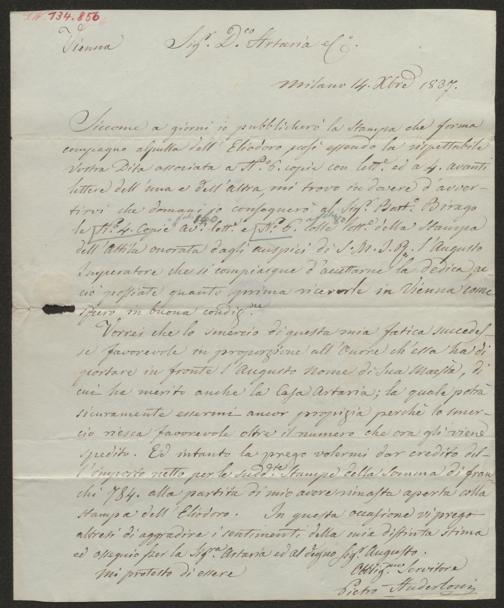 I.N. 134.856
Vienna Sigr. Dco Artaria e Co.
Milano 14. Xbre 1837.
Siccome a giorni io pubblicherò la Stampa che forma
compagno a quella dell' Eliodoro così essendo la rispettabile
Vostra Dita associata a No. 6. copie con lette. ed a 4. avanti
lettere dell' una e dell' altra mi trovo in dovere d'avver-
tirvi che domani io consegnerò al Sigr. Barto. Birago
le No. 4. Copie avti. lette. e No. 6. colle lette. della Stampa
dell' Attila onorata dagli auspici di S. M. I. R. l'Augusto
Imperatore che si compiacque d'accetarne la dedica, ac
ciò possiate quanto prima riceverle in Vienna come
spero in buona condizne.
Vorrei che lo smercio di questa mia fatica succedes
se favorevole in proporzione all' Onore ch'essa ha di
portare in fronte l'Augusto Nome di Sua Maestà, di
cui ha merito anche la Casa Artaria; la quale potrà
sicuramente essermi ancor propizia perchè lo smer-
cio riesca favorevole oltre il numero che ora gli viene
spedito. Ed intanto la prego volermi dar credito del-
l'importo netto per le sudde. Stampe della Somma di fran
chi 784. alla partita di mio avere rimasta aperta colla
stampa dell' Eliodoro. In questa occasione vi prego
altresì di aggradire i sentimenti della mia distinta stima
ed ossequio per la Sigra. Artaria ed al degno Sigr. Augusto.
Mi protesto di essere Obbligmo Servitore
Pietro Anderloni